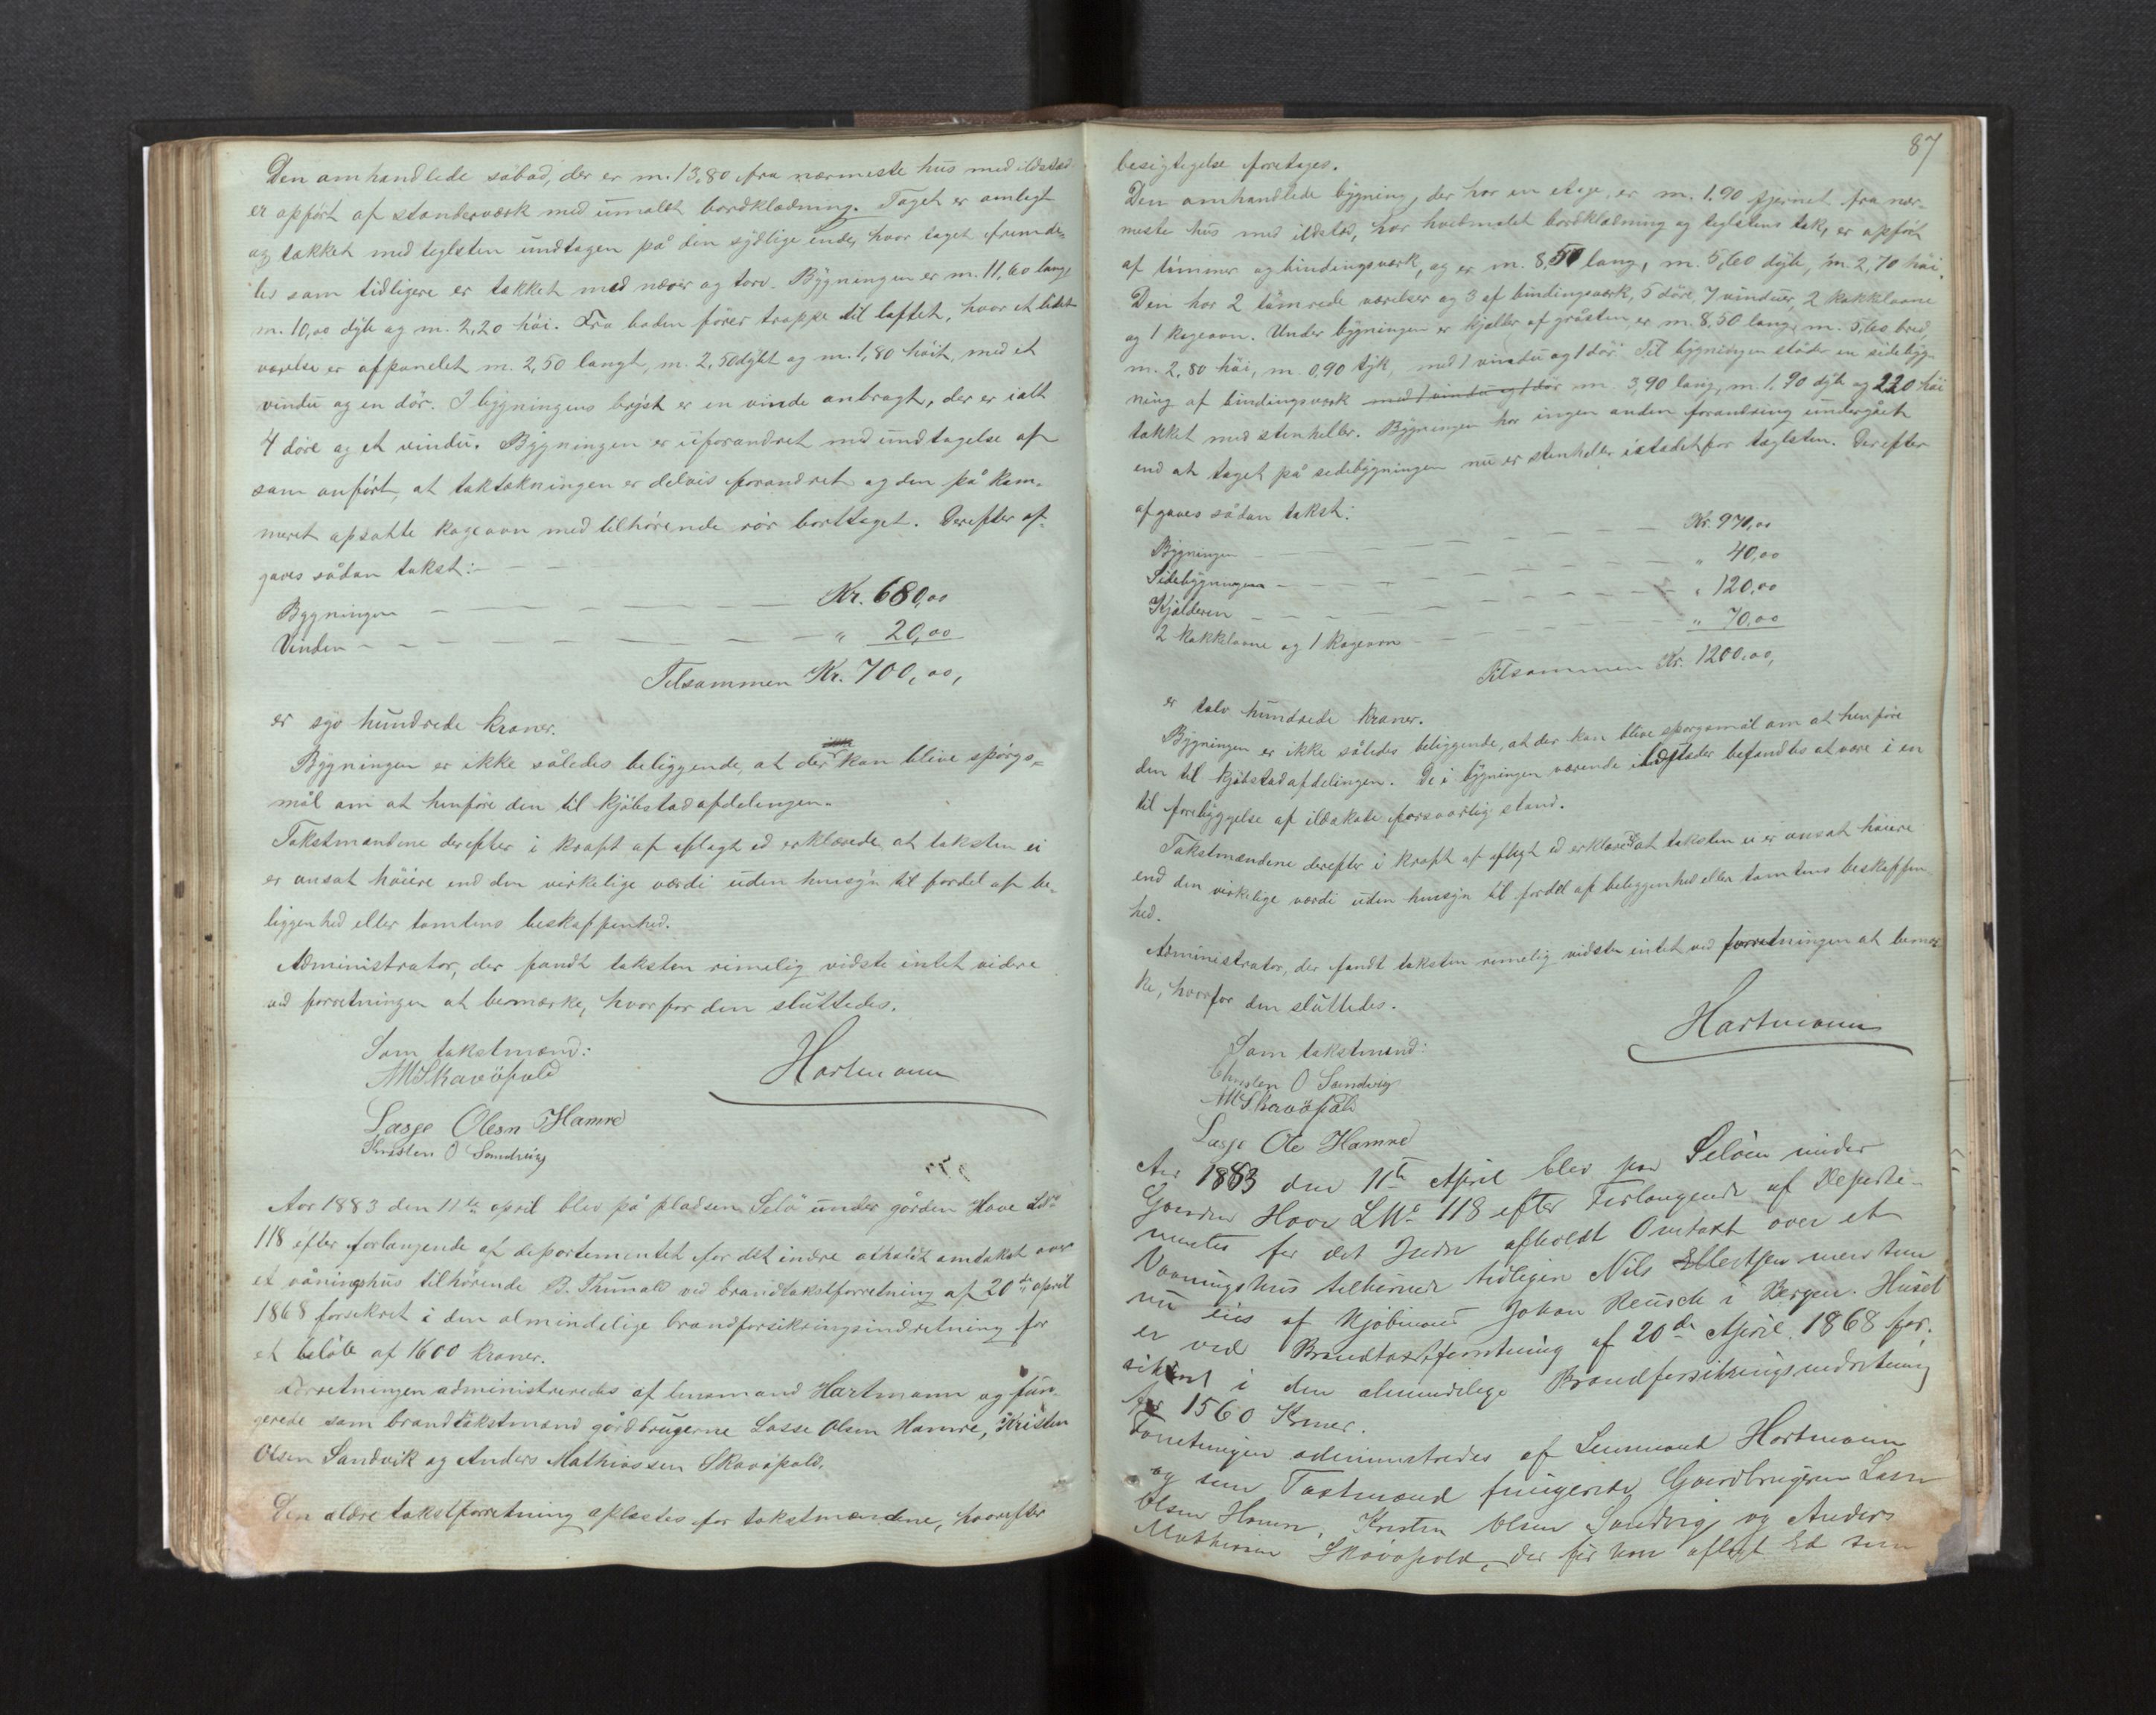 Den omhandlede søbod, der er m. 13,80 fra nærmeste hus med ildsted
er opført af standerværk med umalet bordklædning. Taget er omlagt
og tækket med teglsten undtagen på den sydlige ende, hvor taget fremde-
les som tidligere er tækket med næver og torv. Bygningen er m. 11,60 lang,
m. 10,00 dyb og m. 2,20 høi. Fra boden fører trappe til loftet, hvor et lidet
værelse er afpanelet m. 2,50 langt, m. 2,50 dybt og m. 1,80 høit, med et
vindu og en dør. I bygningens bryst er en vinde anbragt, der er ialt
4 døre og et vindu. Bygningen er uforandret med undtagelse af
som anført, at taktækningen er delvis forandret og den på kam-
meret opsatte kogeovn med tilhørende rør borttaget. Derefter af-
gaves sådan takst:
Bygningen Kr. 680,00
Vinden " 20,00
Tilsammen Kr. 700,00,
er syv hundrede kroner.
Bygningen er ikke således beliggende, at der kan blive spørgs-
mål om at henføre den til kjøbstadafdelingen.
Takstmændene derefter i kraft af aflagt ed erklærede, at taksten ei
er ansat høiere end den virkelige værdi uden hensyn til fordel af be-
liggenhed eller tomtens beskaffenhed.
Administrator, der fandt taksten rimelig vidste intet videre
ved forretningen at bemærke, hvorfor den sluttedes.
Som takstmænd:
AMSkavøpold
Hartmann
Lasse Olesn Hamre
Kristen O Sandvig
Aar 1883 den 11te april blev på pladsen Selø under gården Hove LNo
118 efter forlangende af departementet for det indre afholdt omtakst over
et våningshus tilhørende B. Thunold ved brandtakstforretning af 20de april
1868 forsikret i den almindelige brandforsikringsindretning for
et beløb af 1600 kroner.
Forretningen administreredes af lensmand Hartmann og fun-
gerede som brandtakstmænd gårdbrugerne Lasse Olsen Hamre, Kristen
Olsen Sandvik og Anders Mathiassen Skavøpold.
Den ældre takstforretning oplæstes for takstmændene, hvorefter
87
besigtigelse foretages.
Den omhandlede bygning, der har en etage, er m. 1,90 fjernet fra nær-
meste hus med ildsted, har hvidmalet bordklædning og teglstens tak, er opført
af tømmer og bindingsværk, og er m. 8,50 lang, m. 5,60 dyb, m. 2,70 høi.
Den har 2 tømrede værelser og 3 af bindingsværk, 5 døre, 7 vinduer, 2 kakkelovne
og 1 kogeovn. Under bygningen er kjælder af gråsten, er m. 8,50 lang, m. 5,60 bred,
m. 2,80 høi, m. 0,90 tyk, med 1 vindu og 1 dør. Til bygningen støder en sidebyg-
ning af bindingsværk med 1 vindu og 1 dør m. 3,90 lang, m. 1,90 dyb og 2,20 høi
tækket med stenheller. Bygningen har ingen anden forandring undergået
end at taget på sidebygningen nu er stenheller istedetfor teglsten. Derefter
afgaves sådan takst:
Bygningen Kr. 970,00
Sidebygningen " 40,00
Kjælderen " 120,00
2 kakkelovne og 1 kogeovn " 70,00
Tilsammen Kr. 1200,00,
er tolv hundrede kroner.
Bygningen er ikke således beliggende, at der kan blive spørgsmål om at henføre
den til kjøbstadafdelingen. De i bygningen værende ildsteder befandtes at være i en
til forebyggelse af ildskade forsvarlig stand.
Takstmændene derefter i kraft af aflagt ed erklærede at taksten ei er ansat høiere
end den virkelige værdi uden hensyn til fordel af beliggenhed eller tomtens beskaffen-
hed.
Administrator, der fandt taksten rimelig vidste intet ved forretningen at bemær-
ke, hvorfor den sluttedes.
Hartmann
Som takstmænd:
Christen O Sandvig
AMSkavøpold
Lasse Ole Hamre
Aar 1883 den 11te April blev paa Seløen under
Gaarden Hove LNo 118 efter Forlangende af Departe-
mentet for det Indre afholdt Omtaxt over et
Vaaningshus tilhørende tidligere Nils Ellertsen men som
nu eies af Kjøbmand Johan Reusch i Bergen. Huset
er ved Brandtaxtforretning af 20de April 1868 for-
sikret i den almindelige Brandforsikringsindretning
for 1560 Kroner.
Forretningen administredes af Lensmand Hartmann
og som Taxtmænd fungerede Gaardbrugerne Lasse
Olsen Hamre, Kristen Olsen Sandvig og Anders
Mathiessen Skavøpold, der før have aflagt Ed som